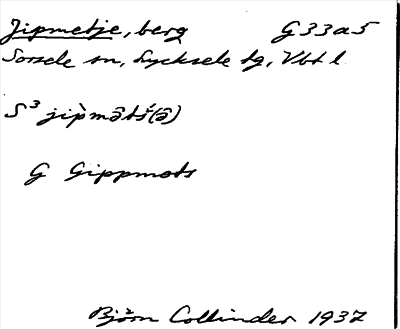 Jipmetje, berg G 33 a 5
Sorsele sn, Lycksele lg, Vbt l.
S³ jìpmɐ̂tś(ɐ̂)
G Gippmots
Björn Collinder 1937